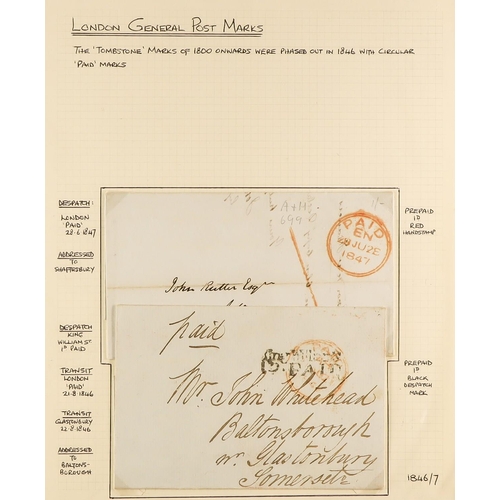 LONDON GENERAL POST MARKS
THE 'TOMBSTONE' MARKS OF 1800 ONWARDS WERE PHASED OUT IN 1846 WITH CIRCULAR
'PAID' MARKS
DESPATCH:
LONDON
'PAID'
28.6.1847
ADDRESSED
TO
SHAFTESBURY
A+H
699
1/-
PAID
EN
28 JU 28
1847
PREPAID
1D
RED
HANDSTAMP
John Rutter Esqr
DESPATCH
KING
WILLIAM ST
1D PAID
TRANSIT
LONDON
'PAID'
21.8.1846
TRANSIT
GLASTONBURY
22.8.1846
ADDRESSED
TO
BALTONS-
BOROUGH
paid
PAID
Mr. John Whitehead
Baltonsborough
nr. Glastonbury
Somerset
PREPAID
1D
BLACK
DESPATCH
MARK
1846/7